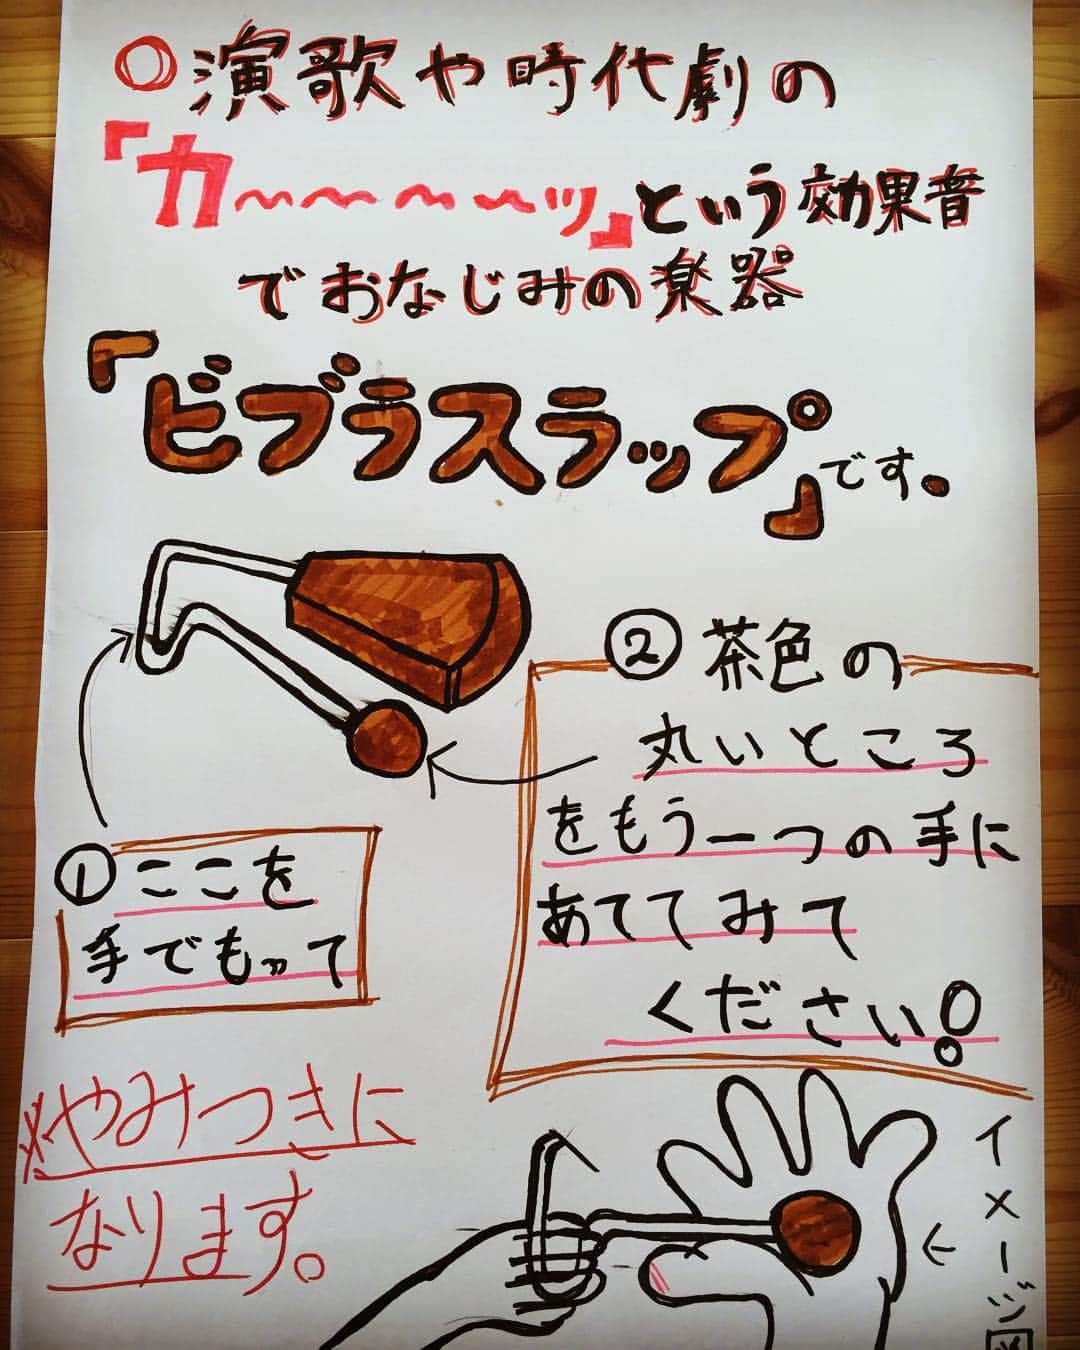 ○演歌や時代劇の
「カ～～～～ッ」という効果音
でおなじみの楽器
「ビブラスラップ」です。
① ここを
手でもって
② 茶色の
丸いところ
をもう一つの手に
あててみて
ください!
※やみつきに
なります。
イメージ図
←